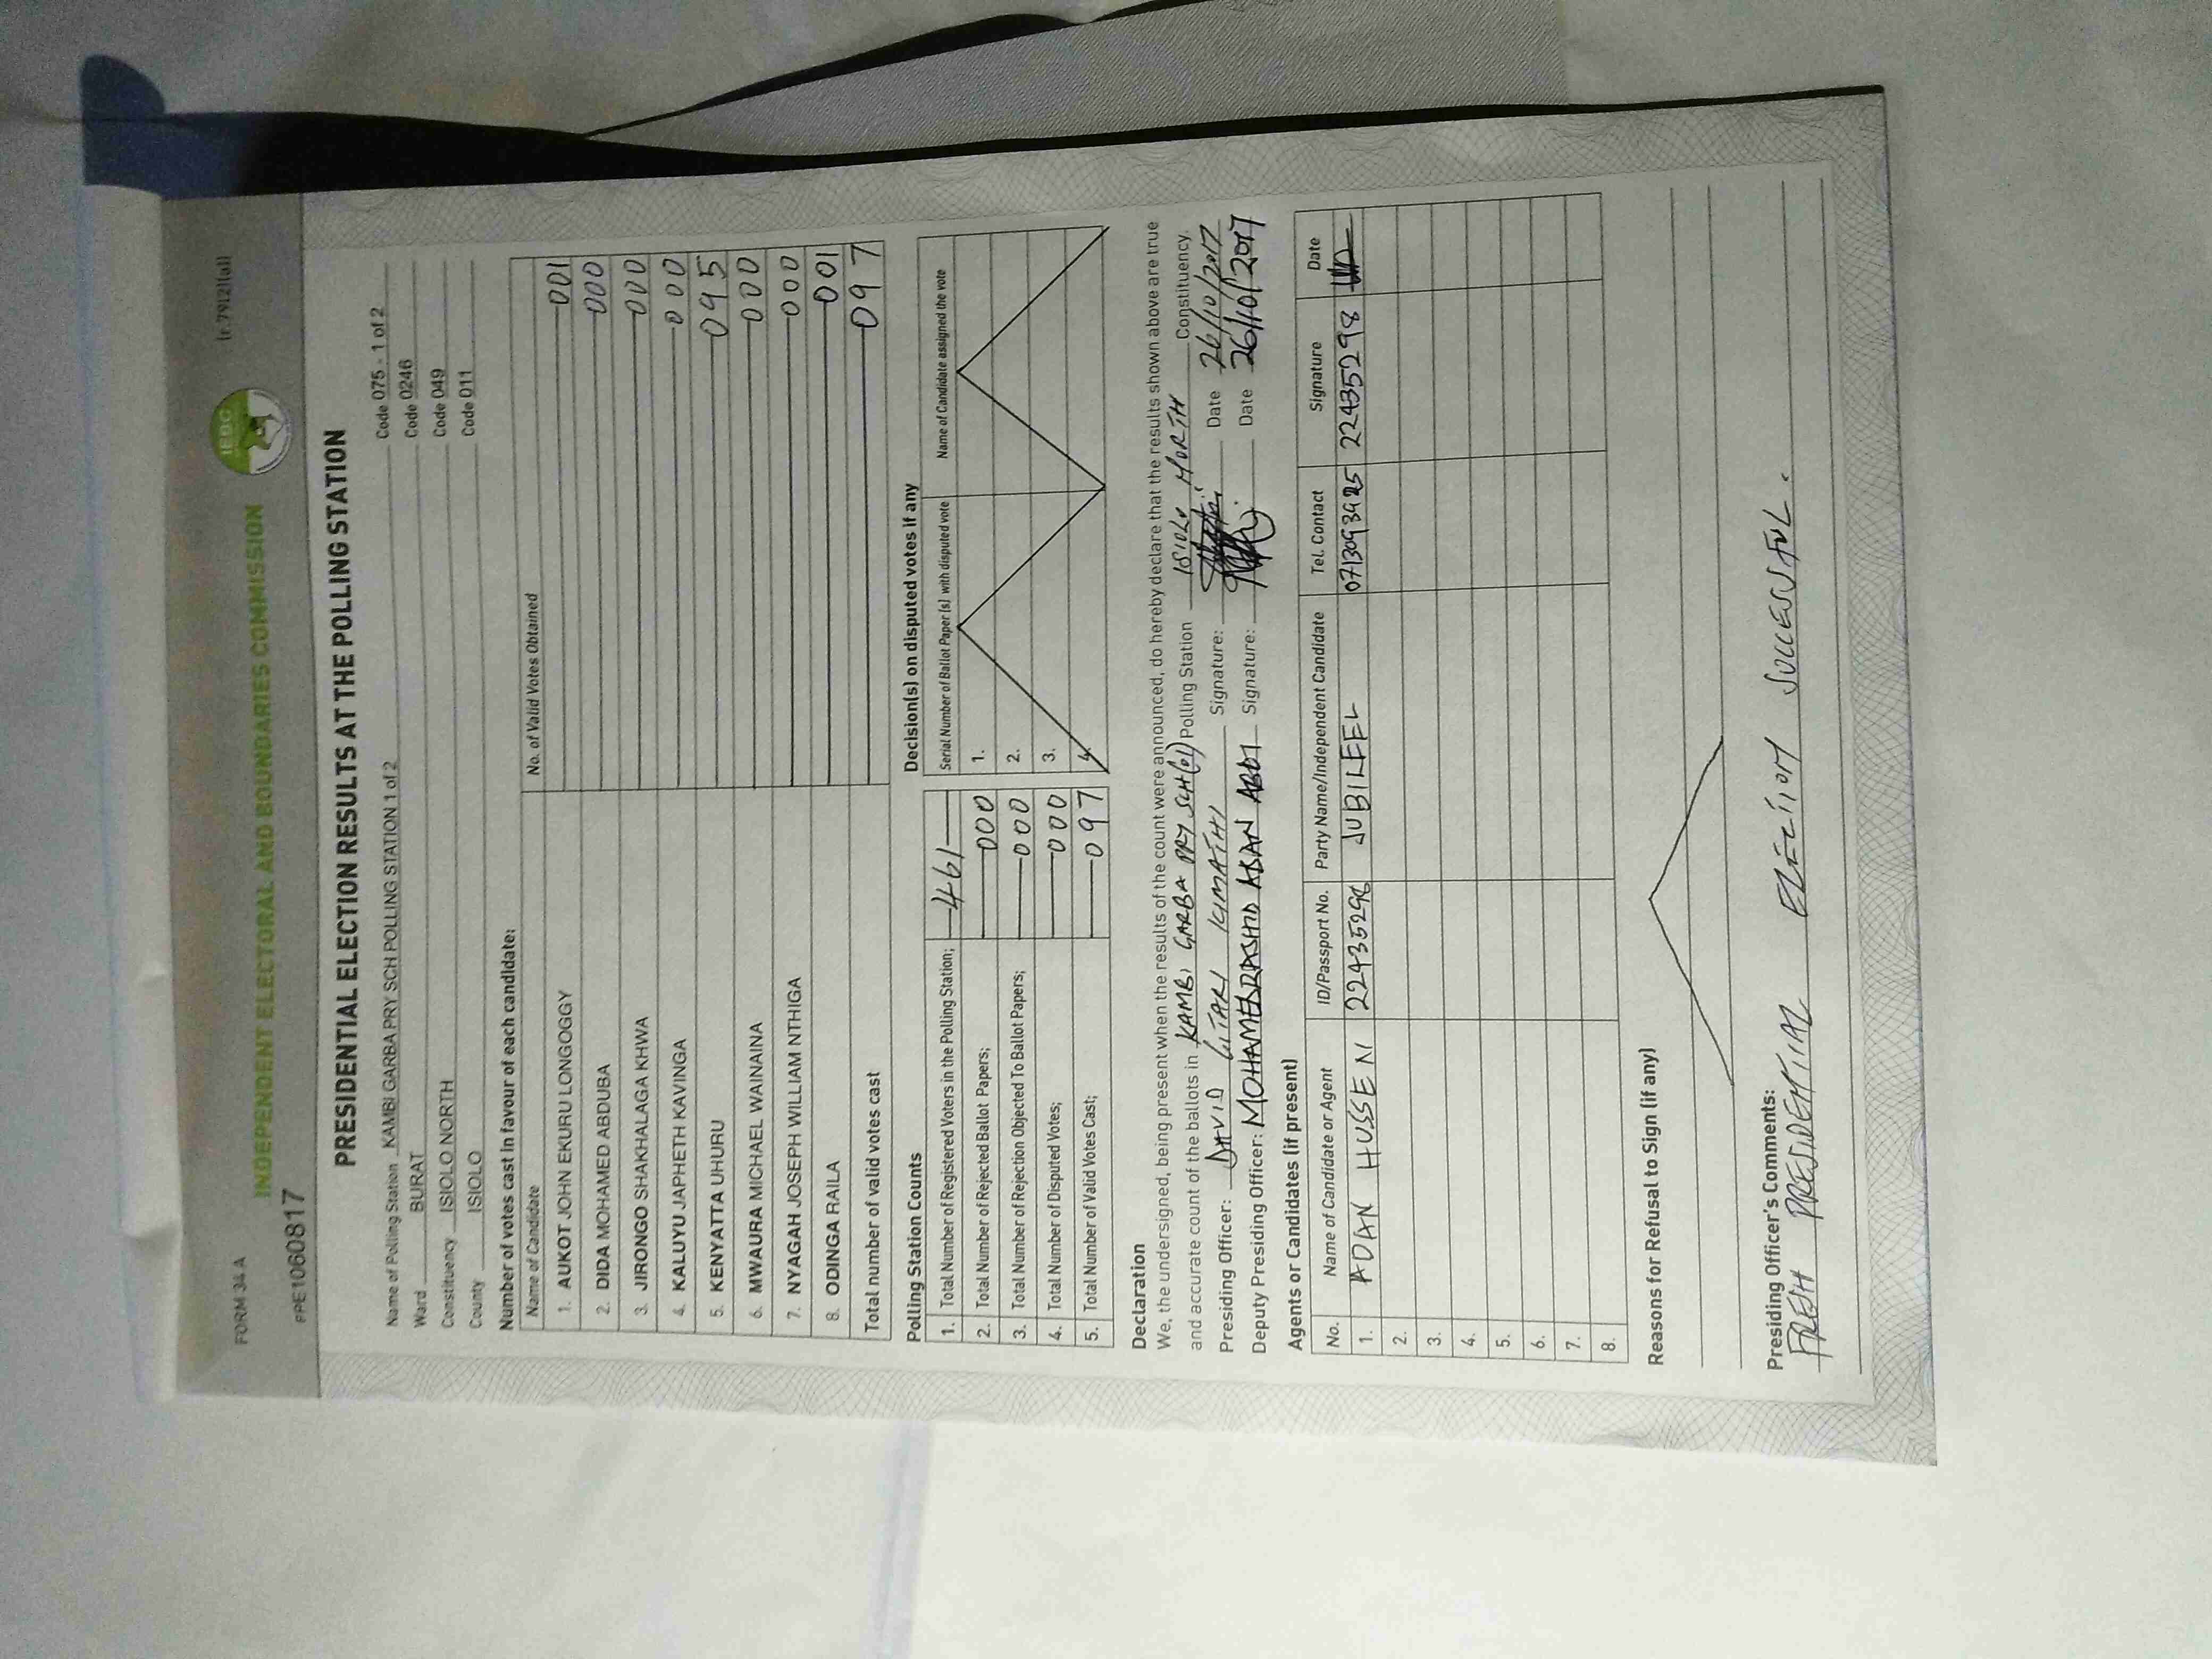 FORM 34 A
(r.79(2)(a))
INDEPENDENT ELECTORAL AND BOUNDARIES COMMISSION
IEBC
PPE1060817
PRESIDENTIAL ELECTION RESULTS AT THE POLLING STATION
Name of Polling Station KAMBI GARBA PRY SCH POLLING STATION 1 of 2 Code 075 - 1 of 2
Ward BURAT Code 0246
Constituency ISIOLO NORTH Code 049
County ISIOLO Code 011
Number of votes cast in favour of each candidate:
Name of Candidate No. of Valid Votes Obtained
1. AUKOT JOHN EKURU LONGOGGY 001
2. DIDA MOHAMED ABDUBA 000
3. JIRONGO SHAKHALAGA KHWA 000
4. KALUYU JAPHETH KAVINGA 000
5. KENYATTA UHURU 095
6. MWAURA MICHAEL WAINAINA 000
7. NYAGAH JOSEPH WILLIAM NTHIGA 000
8. ODINGA RAILA 001
Total number of valid votes cast 097
Polling Station Counts
1. Total Number of Registered Voters in the Polling Station; 461
2. Total Number of Rejected Ballot Papers; 000
3. Total Number of Rejection Objected To Ballot Papers; 000
4. Total Number of Disputed Votes; 000
5. Total Number of Valid Votes Cast; 097
Decision(s) on disputed votes if any
Serial Number of Ballot Paper (s) with disputed vote Name of Candidate assigned the vote
1.
2.
3.
4.
Declaration
We, the undersigned, being present when the results of the count were announced, do hereby declare that the results shown above are true
and accurate count of the ballots in KAMBI GARBA PRY SCH (01) Polling Station ISIOLO NORTH Constituency.
Presiding Officer: DAVID GITARI KIMATHI Signature: Date 26/10/2017
Deputy Presiding Officer: MOHAMEDRASHID ABDI Signature: Date 26/10/2017
Agents or Candidates (if present)
No. Name of Candidate or Agent ID/Passport No. Party Name/Independent Candidate Tel. Contact Signature Date
1. ADAN HUSSEN 22435298 JUBILEEL 0713093925 22435298
2.
3.
4.
5.
6.
7.
8.
Reasons for Refusal to Sign (if any)
Presiding Officer's Comments:
FRESH PRESIDENTIAL ELECTION SUCCESSFUL.